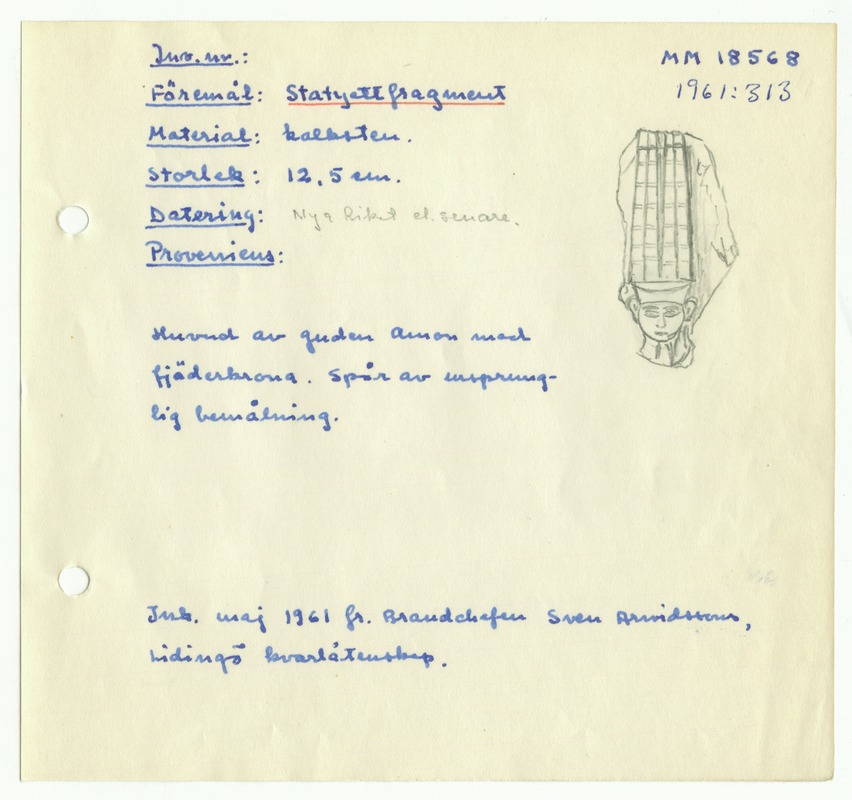 Inv. nr.:
MM 18568
1961:313
Föremål: Statyettfragment
Material: kalksten.
Storlek: 12,5 cm.
Datering: Nya Riket el. senare.
Proveniens:
Huvud av guden Amon med
fjäderkrona. Spår av ursprung-
lig bemålning.
Ink. maj 1961 fr. Brandchefen Sven Arvidssons,
Lidingö kvarlåtenskap.